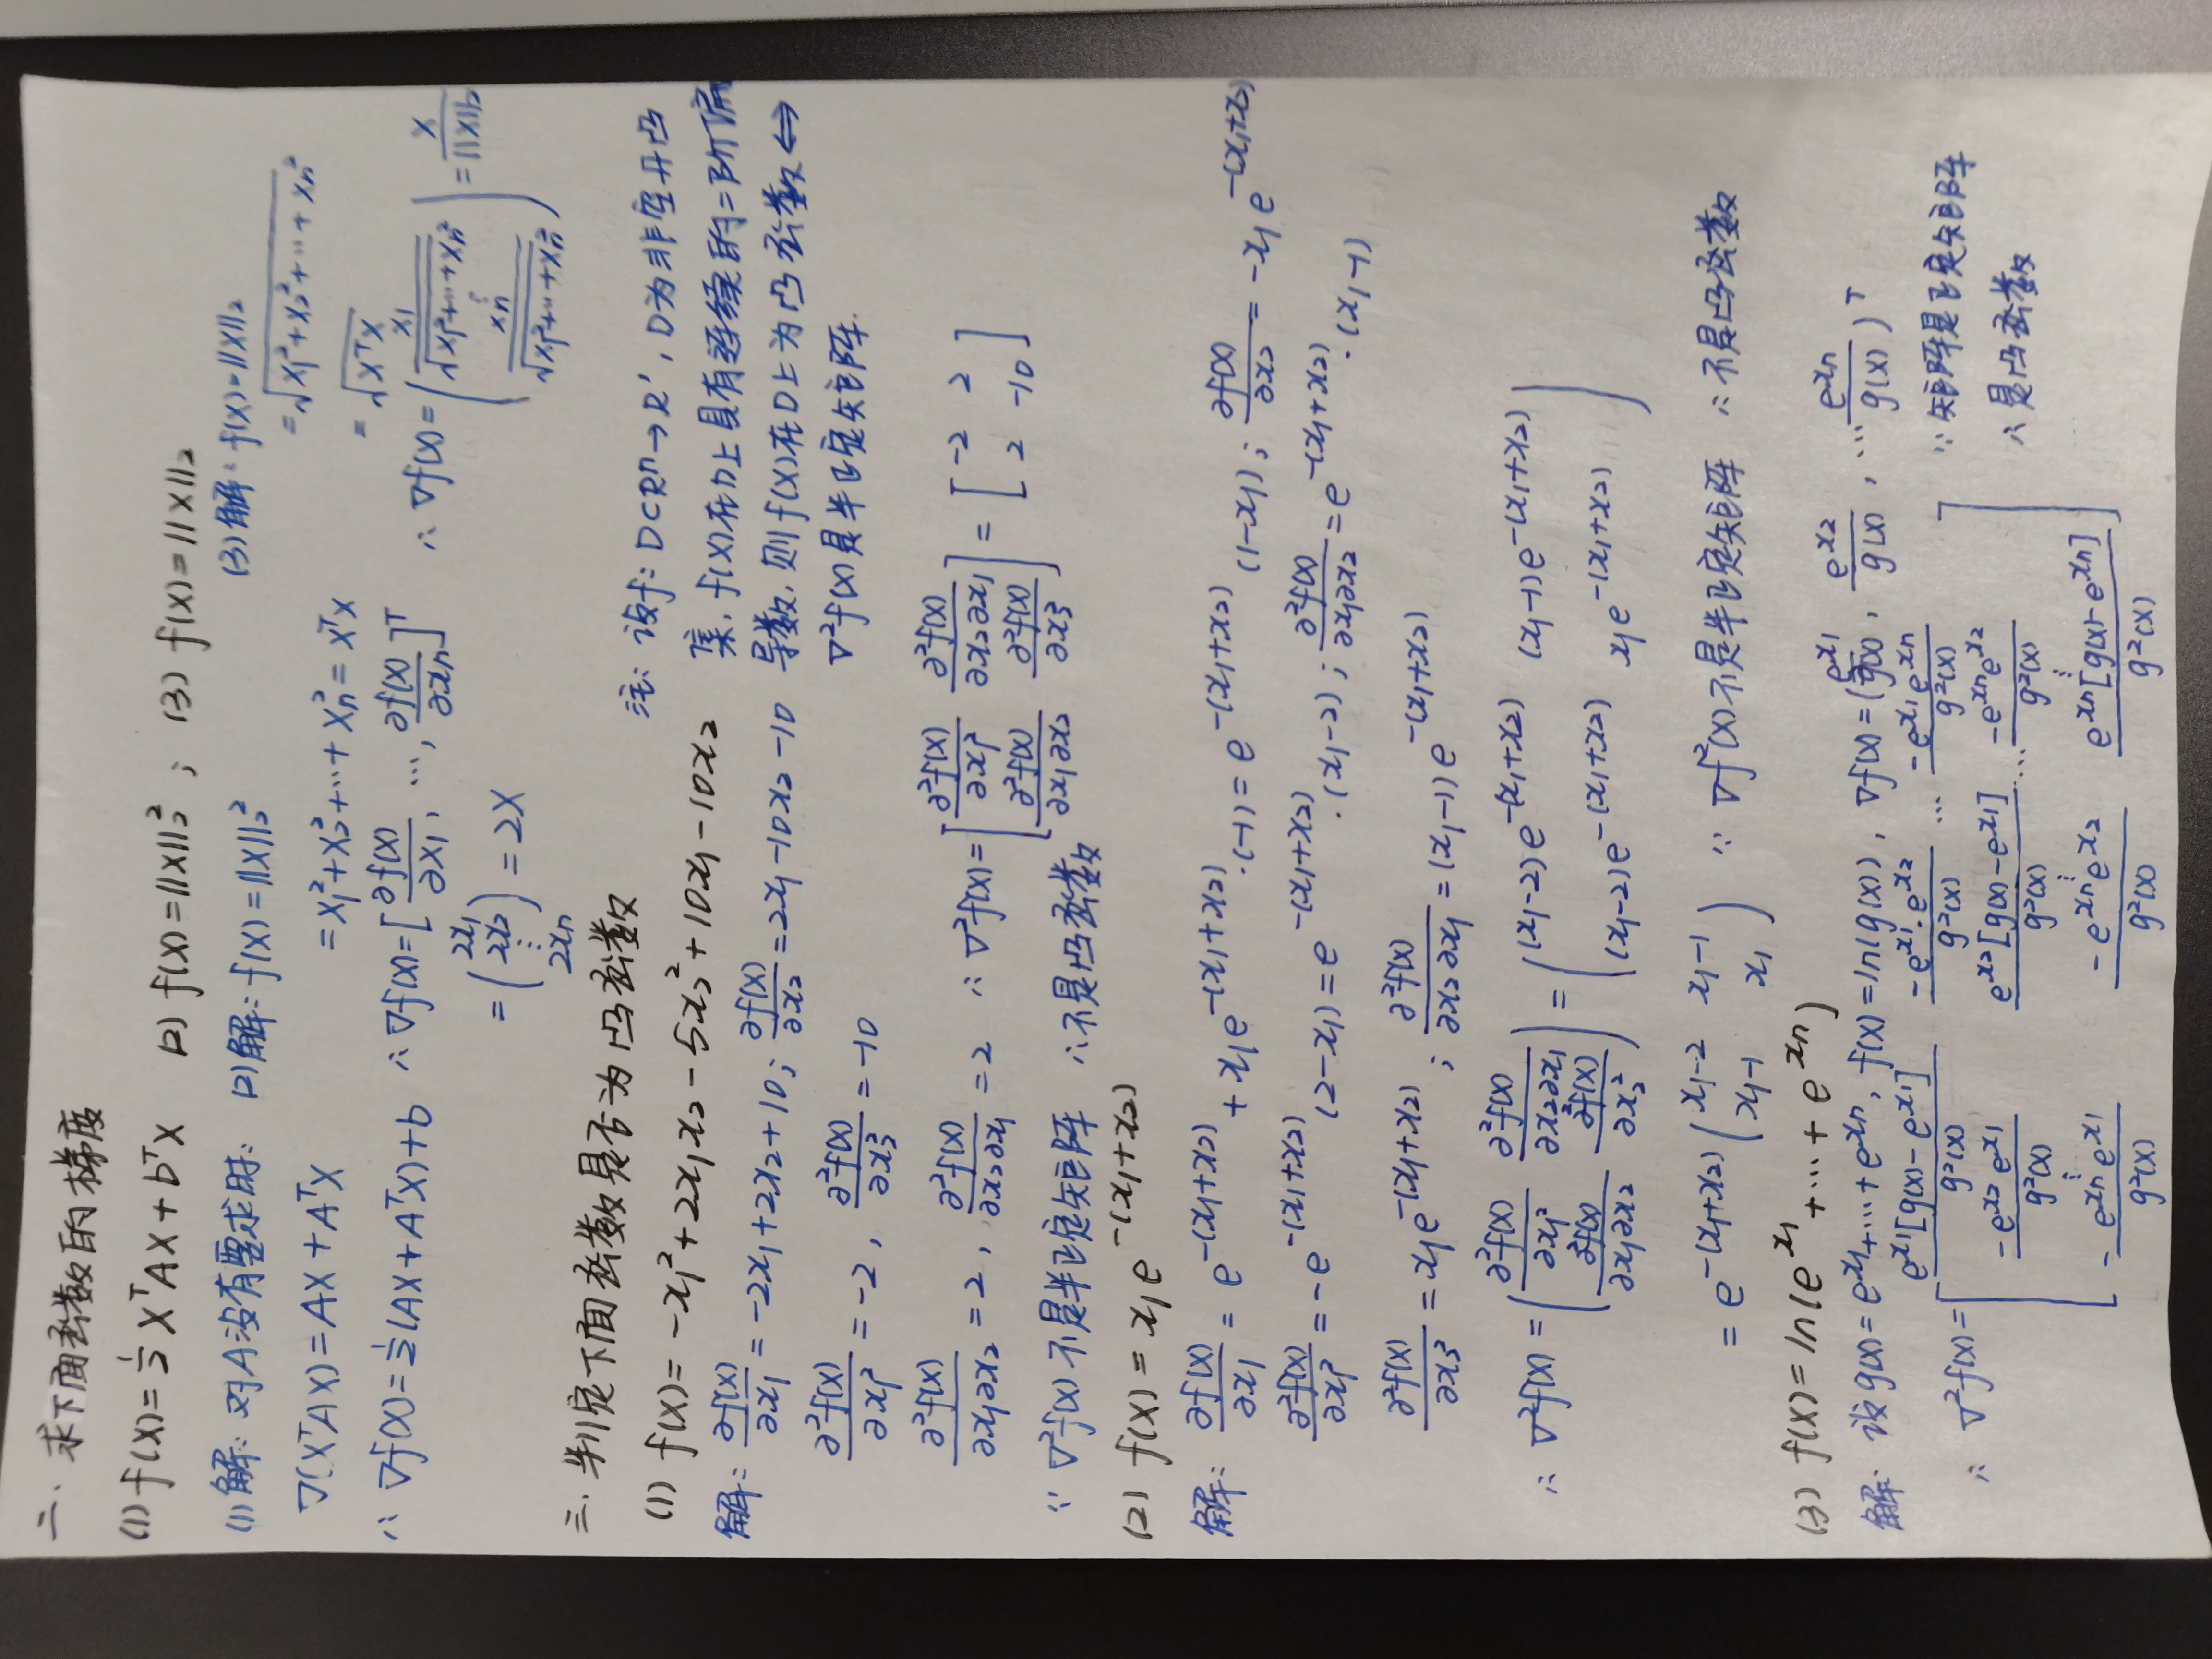 二、求下面函数的梯度
(1) f(X)=½XᵀAX+bᵀX (2) f(X)=||X||₂²; (3) f(X)=||X||₂
(1)解:对A没有要求时:
∇(XᵀAX)=AX+AᵀX
∴ ∇f(X)=½(AX+AᵀX)+b
(2)解: f(X)=||X||₂²
=x₁²+x₂²+…+xₙ²=XᵀX
∴ ∇f(X)=[∂f(X)/∂x₁, …, ∂f(X)/∂xₙ]ᵀ
=(2x₁ 2x₂ ⋮ 2xₙ)=2X
(3)解: f(X)=||X||₂
=√(x₁²+x₂²+…+xₙ²)
=√(XᵀX)
∴ ∇f(X)=(x₁/√(x₁²+…+xₙ²) ⋮ xₙ/√(x₁²+…+xₙ²))=X/||X||₂
三、判定下面函数是否为凸函数
(1) f(X)=-x₁²+2x₁x₂-5x₂²+10x₁-10x₂
注: 设f: D⊂Rⁿ→R¹, D为非空开凸
集, f(X)在D上具有连续的二阶偏
导数, 则f(X)在D上为凸函数⇔
∇²f(X)是半正定矩阵.
解: ∂f(X)/∂x₁=-2x₁+2x₂+10; ∂f(X)/∂x₂=2x₁-10x₂-10
∂²f(X)/∂x₁²=-2, ∂²f(X)/∂x₂²=-10
∂²f(X)/∂x₁∂x₂=2, ∂²f(X)/∂x₂∂x₁=2 ∴ ∇²f(X)=[∂²f(X)/∂x₁² ∂²f(X)/∂x₂∂x₁; ∂²f(X)/∂x₁∂x₂ ∂²f(X)/∂x₂²]=[-2 2; 2 -10]
∵ ∇²f(X)不是半正定矩阵 ∴不是凸函数
(2) f(X)=x₁e^{-(x₁+x₂)}
解: ∂f(X)/∂x₁=e^{-(x₁+x₂)}+x₁e^{-(x₁+x₂)}·(-1)=e^{-(x₁+x₂)}(1-x₁); ∂f(X)/∂x₂=-x₁e^{-(x₁+x₂)}
∂²f(X)/∂x₁²=-e^{-(x₁+x₂)}(2-x₁)=e^{-(x₁+x₂)}·(x₁-2); ∂²f(X)/∂x₁∂x₂=e^{-(x₁+x₂)}·(x₁-1)
∂²f(X)/∂x₂²=x₁e^{-(x₁+x₂)}; ∂²f(X)/∂x₂∂x₁=(x₁-1)e^{-(x₁+x₂)}
∴ ∇²f(X)=(∂²f(X)/∂x₁² ∂²f(X)/∂x₂∂x₁; ∂²f(X)/∂x₁∂x₂ ∂²f(X)/∂x₂²)=((x₁-2)e^{-(x₁+x₂)} (x₁-1)e^{-(x₁+x₂)}; (x₁-2)e^{-(x₁+x₂)} x₁e^{-(x₁+x₂)})
=e^{-(x₁+x₂)}(x₁-2 x₁-1; x₁-1 x₁) ∵ ∇f²(X)不是半正定矩阵 ∴不是凸函数
(3) f(X)=ln(e^{x₁}+…+e^{xₙ})
解: 设g(X)=e^{x₁}+…+e^{xₙ}, f(X)=ln(g(X)), ∇f(X)=(e^{x₁}/g(X), e^{x₂}/g(X), …e^{xₙ}/g(X))ᵀ
∴ ∇²f(X)=[e^{x₁}[g(X)-e^{x₁}]/g²(X) -e^{x₁}·e^{x₂}/g²(X) … -e^{x₁}e^{xₙ}/g²(X)
-e^{x₂}e^{x₁}/g²(X) e^{x₂}[g(X)-e^{x₁}]/g²(X) … -e^{xₙ}e^{x₂}/g²(X)
⋮ ⋮ ⋮
-e^{xₙ}e^{x₁}/g²(X) -e^{xₙ}e^{x₂}/g²(X) e^{xₙ}[g(X)-e^{xₙ}]/g²(X)]
∵ 矩阵是正定矩阵
∴ 是凸函数